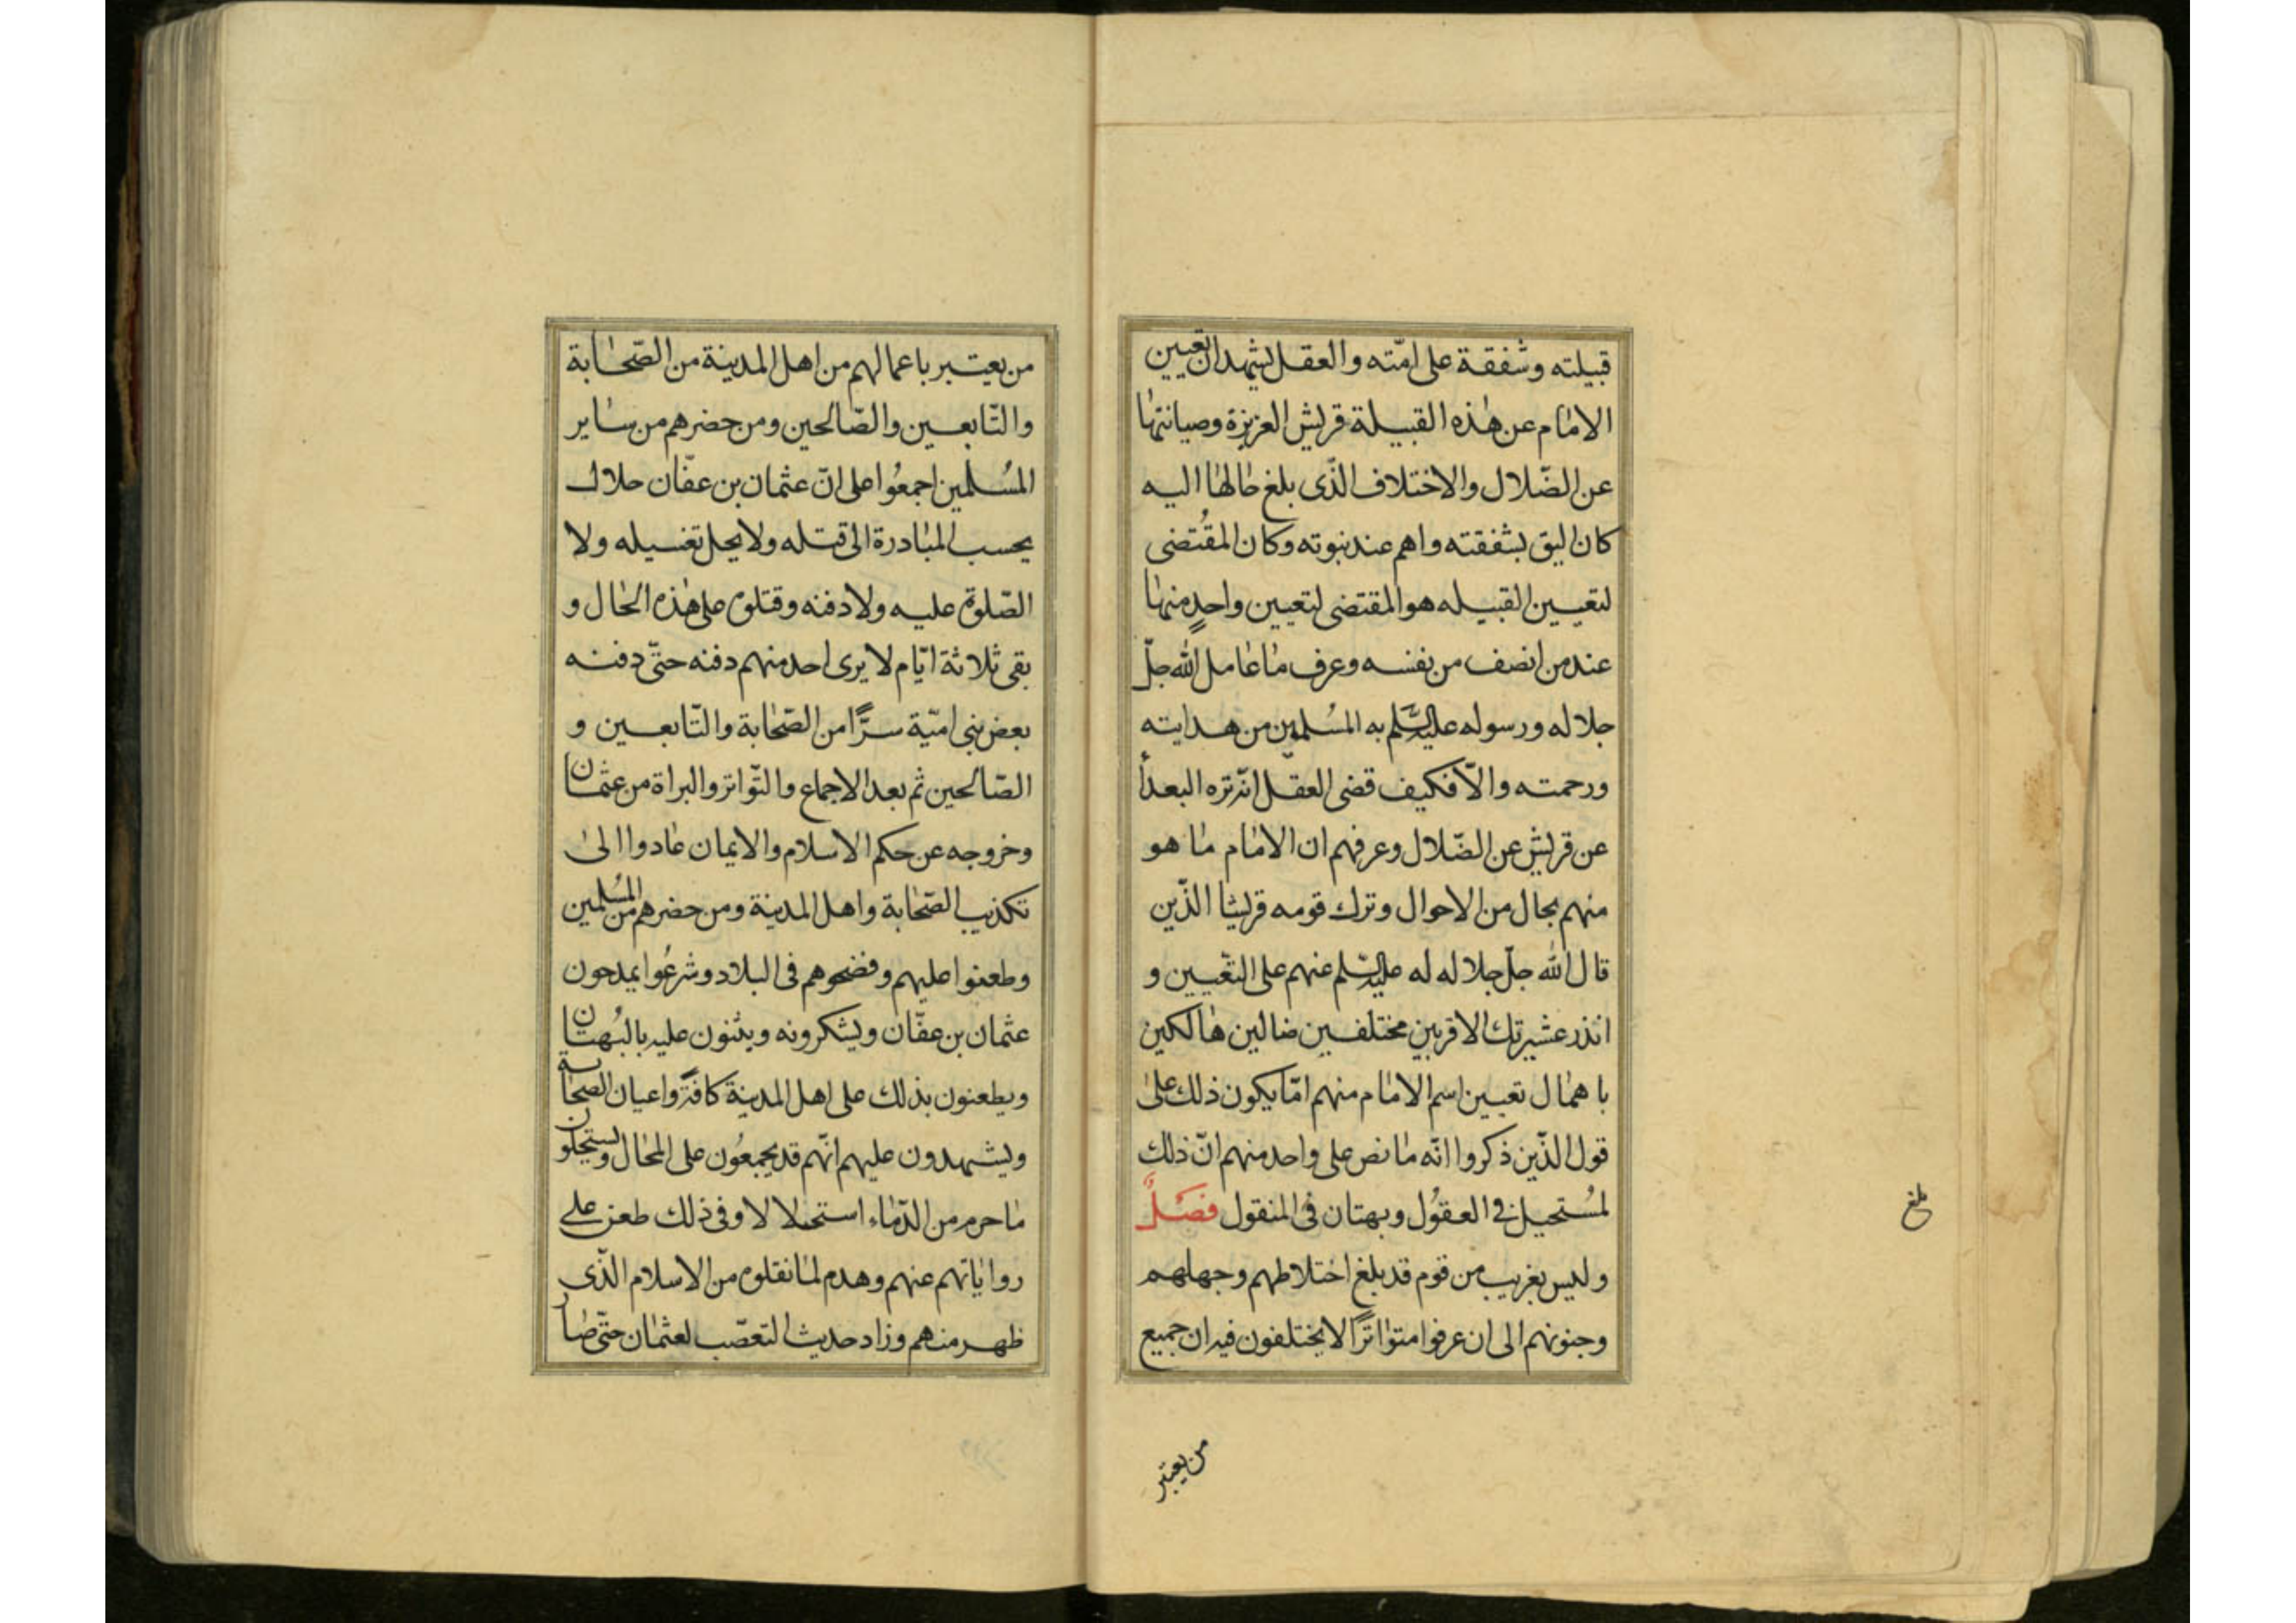 قبيلته وشفقة على امّته والعقل يشهد ان تعيين
الامام عن هذه القبيلة قريش العزيزة وصيانتها
عن الضّلال والاختلاف الذّى بلغ حالها اليه
كان اليق بشفقته واهم عند نبوته وكان المقُتضى
لتعيين القبيله هو المقتضى لتعيين واحدٍ منها
عند من انصف من نفسه وعرف ما عامل الله جلّ
جلاله ورسوله عليه السّلم به المسُلمين من هدايته
ورحمته والّا فكيف قضى العقل انّه نزه البعدأ
عن قريش عن الضّلال وعرفهم ان الامام ما هو
منهم بحال من الاحوال وترك قومه قريشا الذّين
قال الله جلّ جلاله له عليه السّلم عنهم على التعّيين و
انذر عشيرتك الاقربين مختلفين ضالين هالكين
باهمال تعيين اسم الامام منهم امّا يكون ذلك على
قول الذّين ذكروا انّه ما نص على واحد منهم انّ ذلك
لمسُتحيل فى العقوُل وبهتان فى المنقول فصَلٌ
وليس بغريب من قوم قد بلغ اختلاطهم وجهلهم
وجنونهم الى ان عرفوا متواترًا لا يختلفون فيه ان جميع
بلغ
من يعتبر
من يعتبر باعمالهم من اهل المدينة من الصّحابة
والتّابعين والصّالحين ومن حضرهم من ساير
المسُلمين اجمعُوا على انّ عثمان بن عفّان حلال
يحسب المبادرة الى قتله ولا يحل تغسيله ولا
الصّلوة عليه ولا دفنه وقتلوه على هذه الحال و
بقى ثلاثة ايّام لا يرى احد منهم دفنه حتّى دفنه
بعض بنى اميّة سرًّا من الصّحابة والتّابعين و
الصّالحين ثم بعد الاجماع والتّواتر والبراة من عثمان
وخروجه عن حكم الاسلام والايمان عادوا الى
تكذيب الصّحابة واهل المدينة ومن حضرهم من المسُلمين
وطعنوا عليهم وفضحوهم فى البلاد وشرعُوا يمدحون
عثمان بن عفّان ويشكرونه ويثنون عليه بالبُهتان
ويطعنون بذلك على اهل المدينة كافّةً واعيان الصحابة
ويشهدون عليهم انّهم قد يجمعُون على المحال ويستحلون
ما حرم من الدّماء استحلالا وفى ذلك طعن على
رواياتهم عنهم وهدم لما نقلوه من الاسلام الذّى
ظهر منهم وزاد حديث التعصّب لعثمان حتّى صار